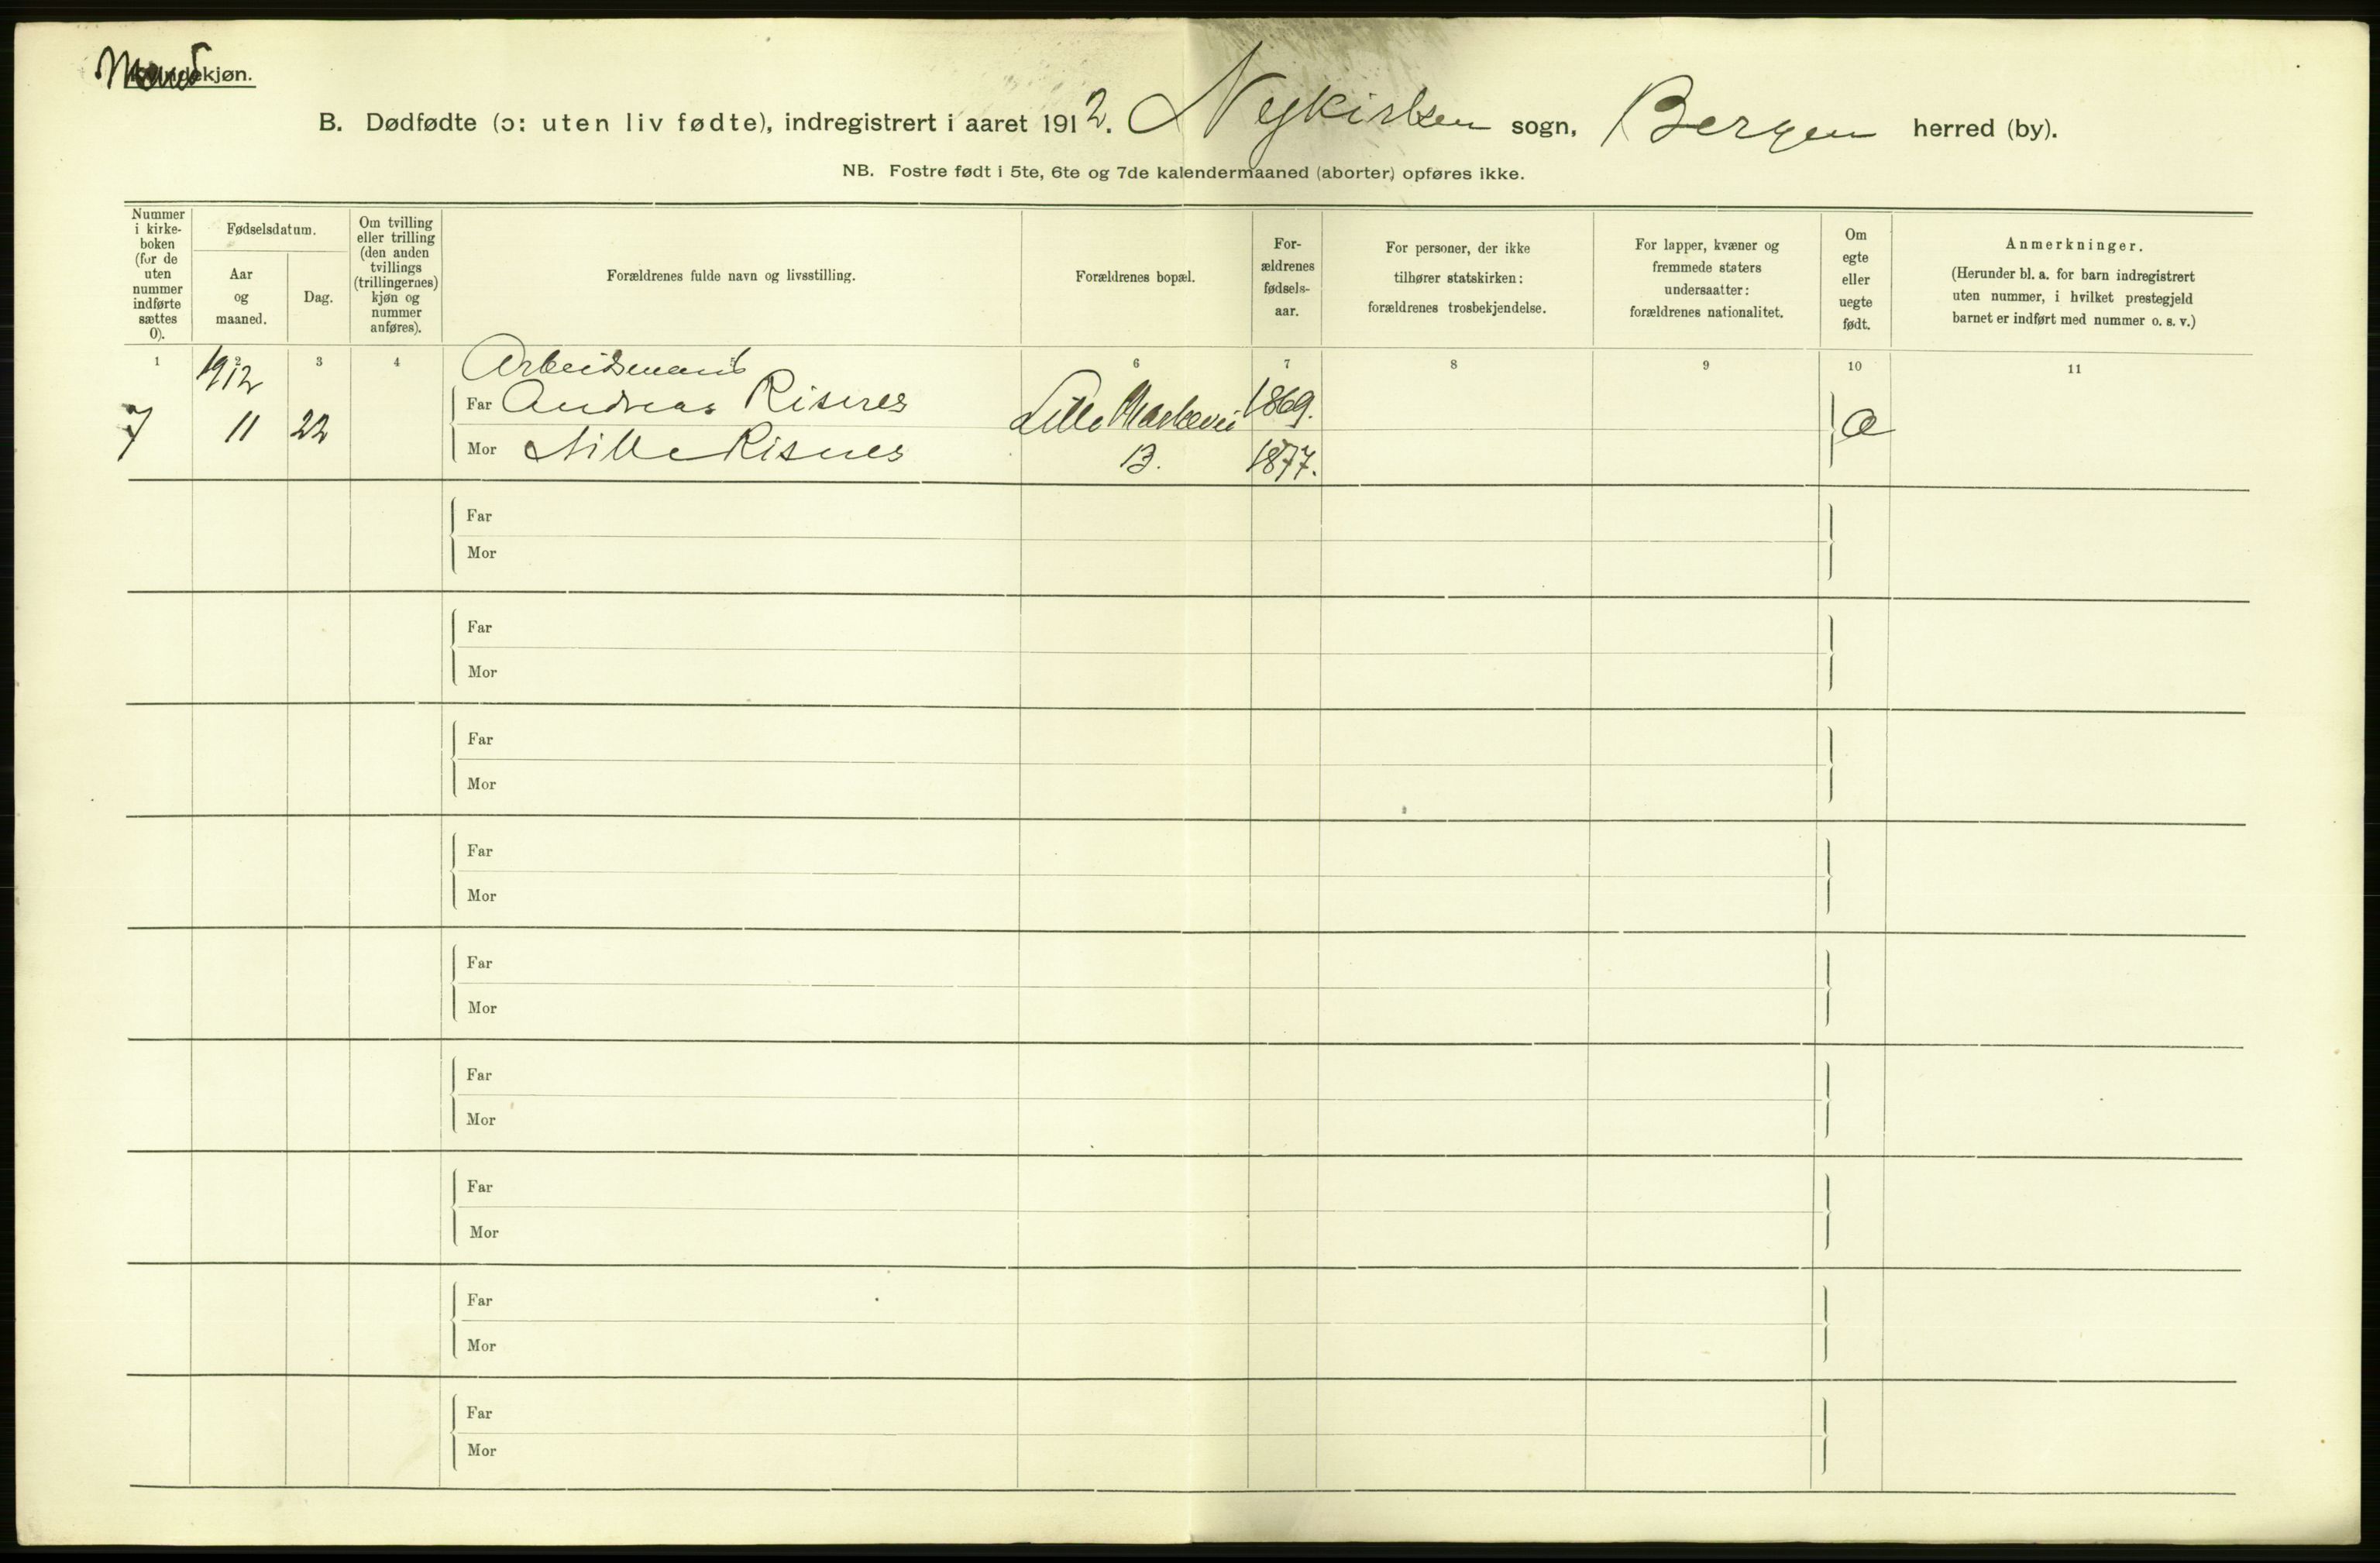 Mandekjøn.
B. Dødfødte (ɔ: uten liv fødte), indregistrert i aaret 1912. Nykirken sogn, Bergen herred (by).
NB. Fostre født i 5te, 6te og 7de kalendermaaned (aborter) opføres ikke.
Nummer
i kirke-
boken
(for de
uten
nummer
indførte
sættes
0).
Fødselsdatum.
Aar
og
maaned.
Dag.
Om tvilling
eller trilling
(den anden
tvillings
(trillingernes)
kjøn og
nummer
anføres).
Forældrenes fulde navn og livsstilling.
Forældrenes bopæl.
For-
ældrenes
fødsels-
aar.
For personer, der ikke
tilhører statskirken:
forældrenes trosbekjendelse.
For lapper, kvæner og
fremmede staters
undersaatter:
forældrenes nationalitet.
Om
egte
eller
uegte
født.
Anmerkninger.
(Herunder bl. a. for barn indregistrert
uten nummer, i hvilket prestegjeld
barnet er indført med nummer o. s. v.)
1 2 3 4 5 6 7 8 9 10 11
1912 Arbeidsmand
Far Andreas Risnes Lille Markevei 1869.
7 11 22 æ
Mor Nille Risnes 13. 1877.
Far
Mor
Far
Mor
Far
Mor
Far
Mor
Far
Mor
Far
Mor
Far
Mor
Far
Mor
Far
Mor